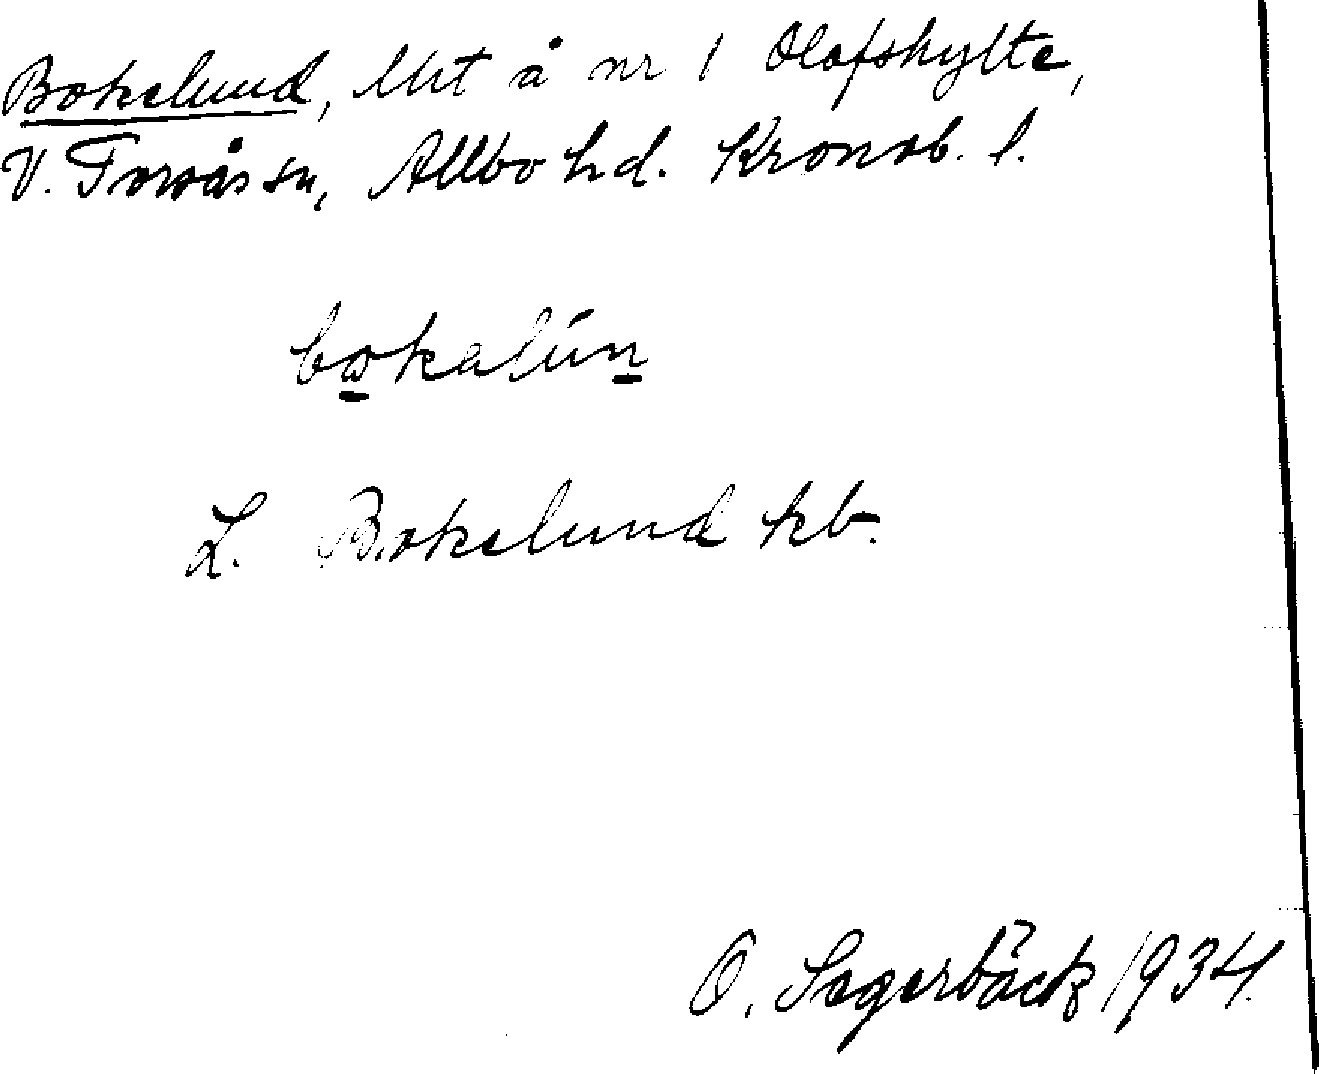 Bokelund, lht å nr 1 Olofshylte,
V. Torsås sn, Allbo hd. Kronob. l.
bokalún
L. Bokelund kb.
O. Sagerbäck 1934.